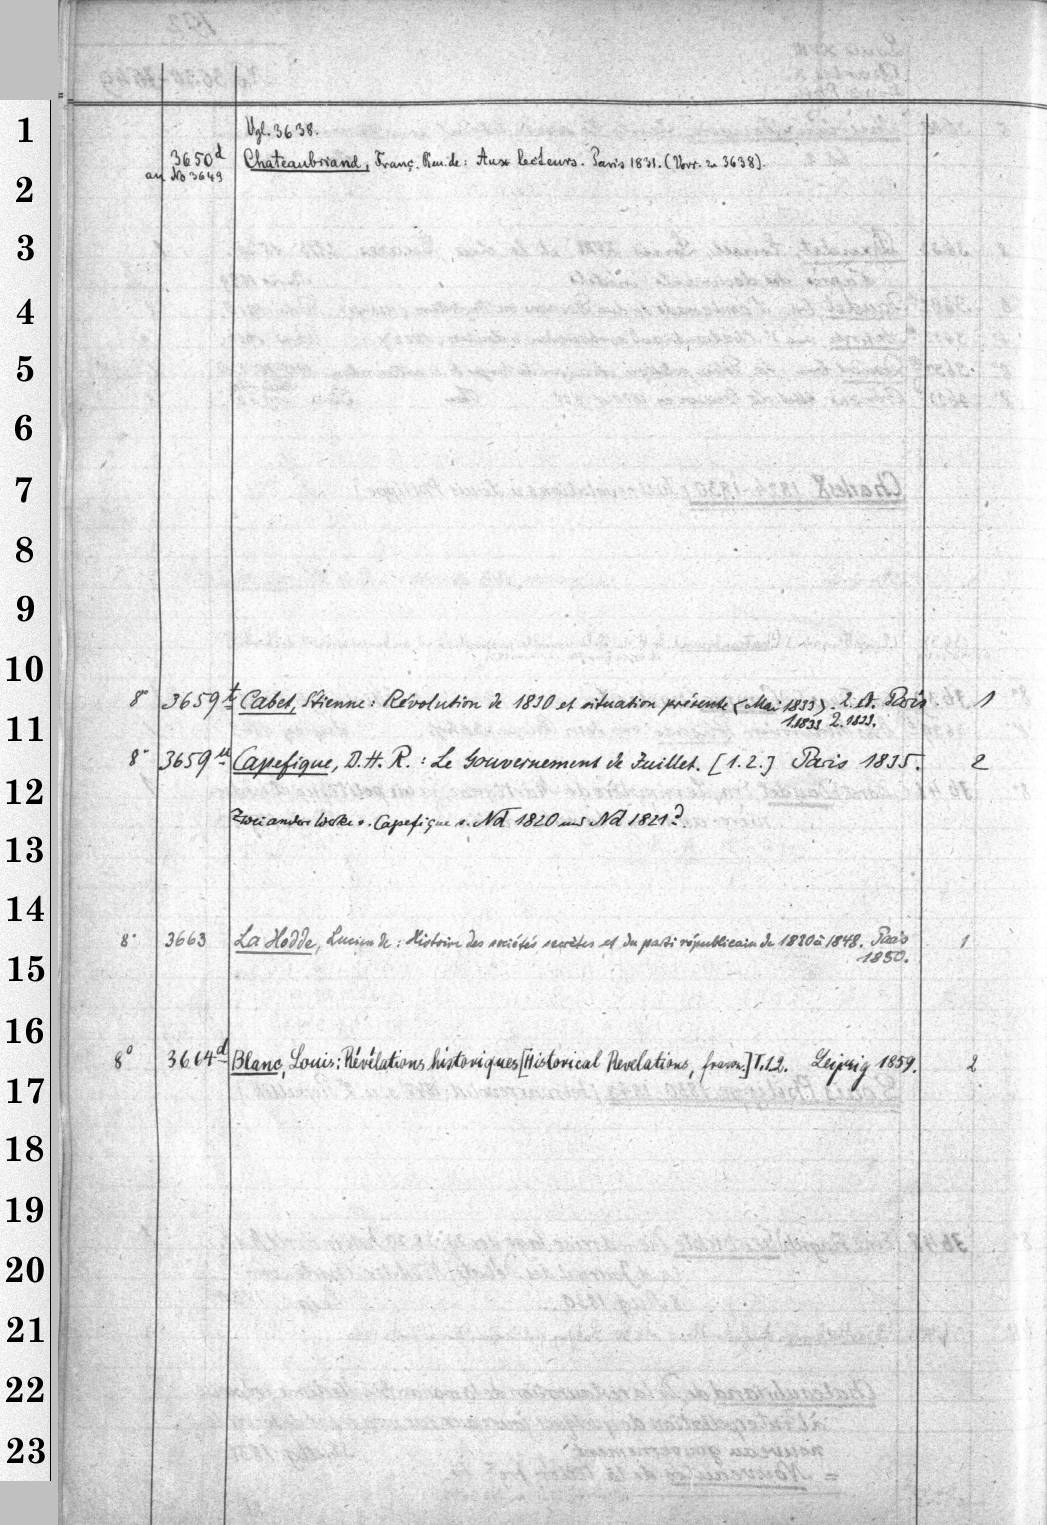 1
Vgl. 3638.
3650d Chateaubriand, Franç. Ren. de: Aux lecteurs. Paris 1831. (Vorr. zu 3638).
an No 3649
2
3
4
5
6
7
8
9
10
8° 3659t Cabet, Etienne: Révolution de 1830 et situation présente (Mai 1833). 2. A. Paris 1
1.1833 2.1833.
11
8° 3659u Capefigue, B.H.R.: Le Gouvernement de Juillet. [1.2.] Paris 1835. 2
12
Zwei andere Werke v. Capefigue s. Nd 1820 und Nd 1821?.
13
14
8° 3663 La Hodde, Lucien de: Histoire des sociétés secrètes et du parti républicain de 1830 à 1848. Paris 1
1850.
15
16
8° 3664d Blanc, Louis: Révélations historiques [Historical Revelations, franz.] T.1.2. Leipzig 1859. 2
17
18
19
20
21
22
23